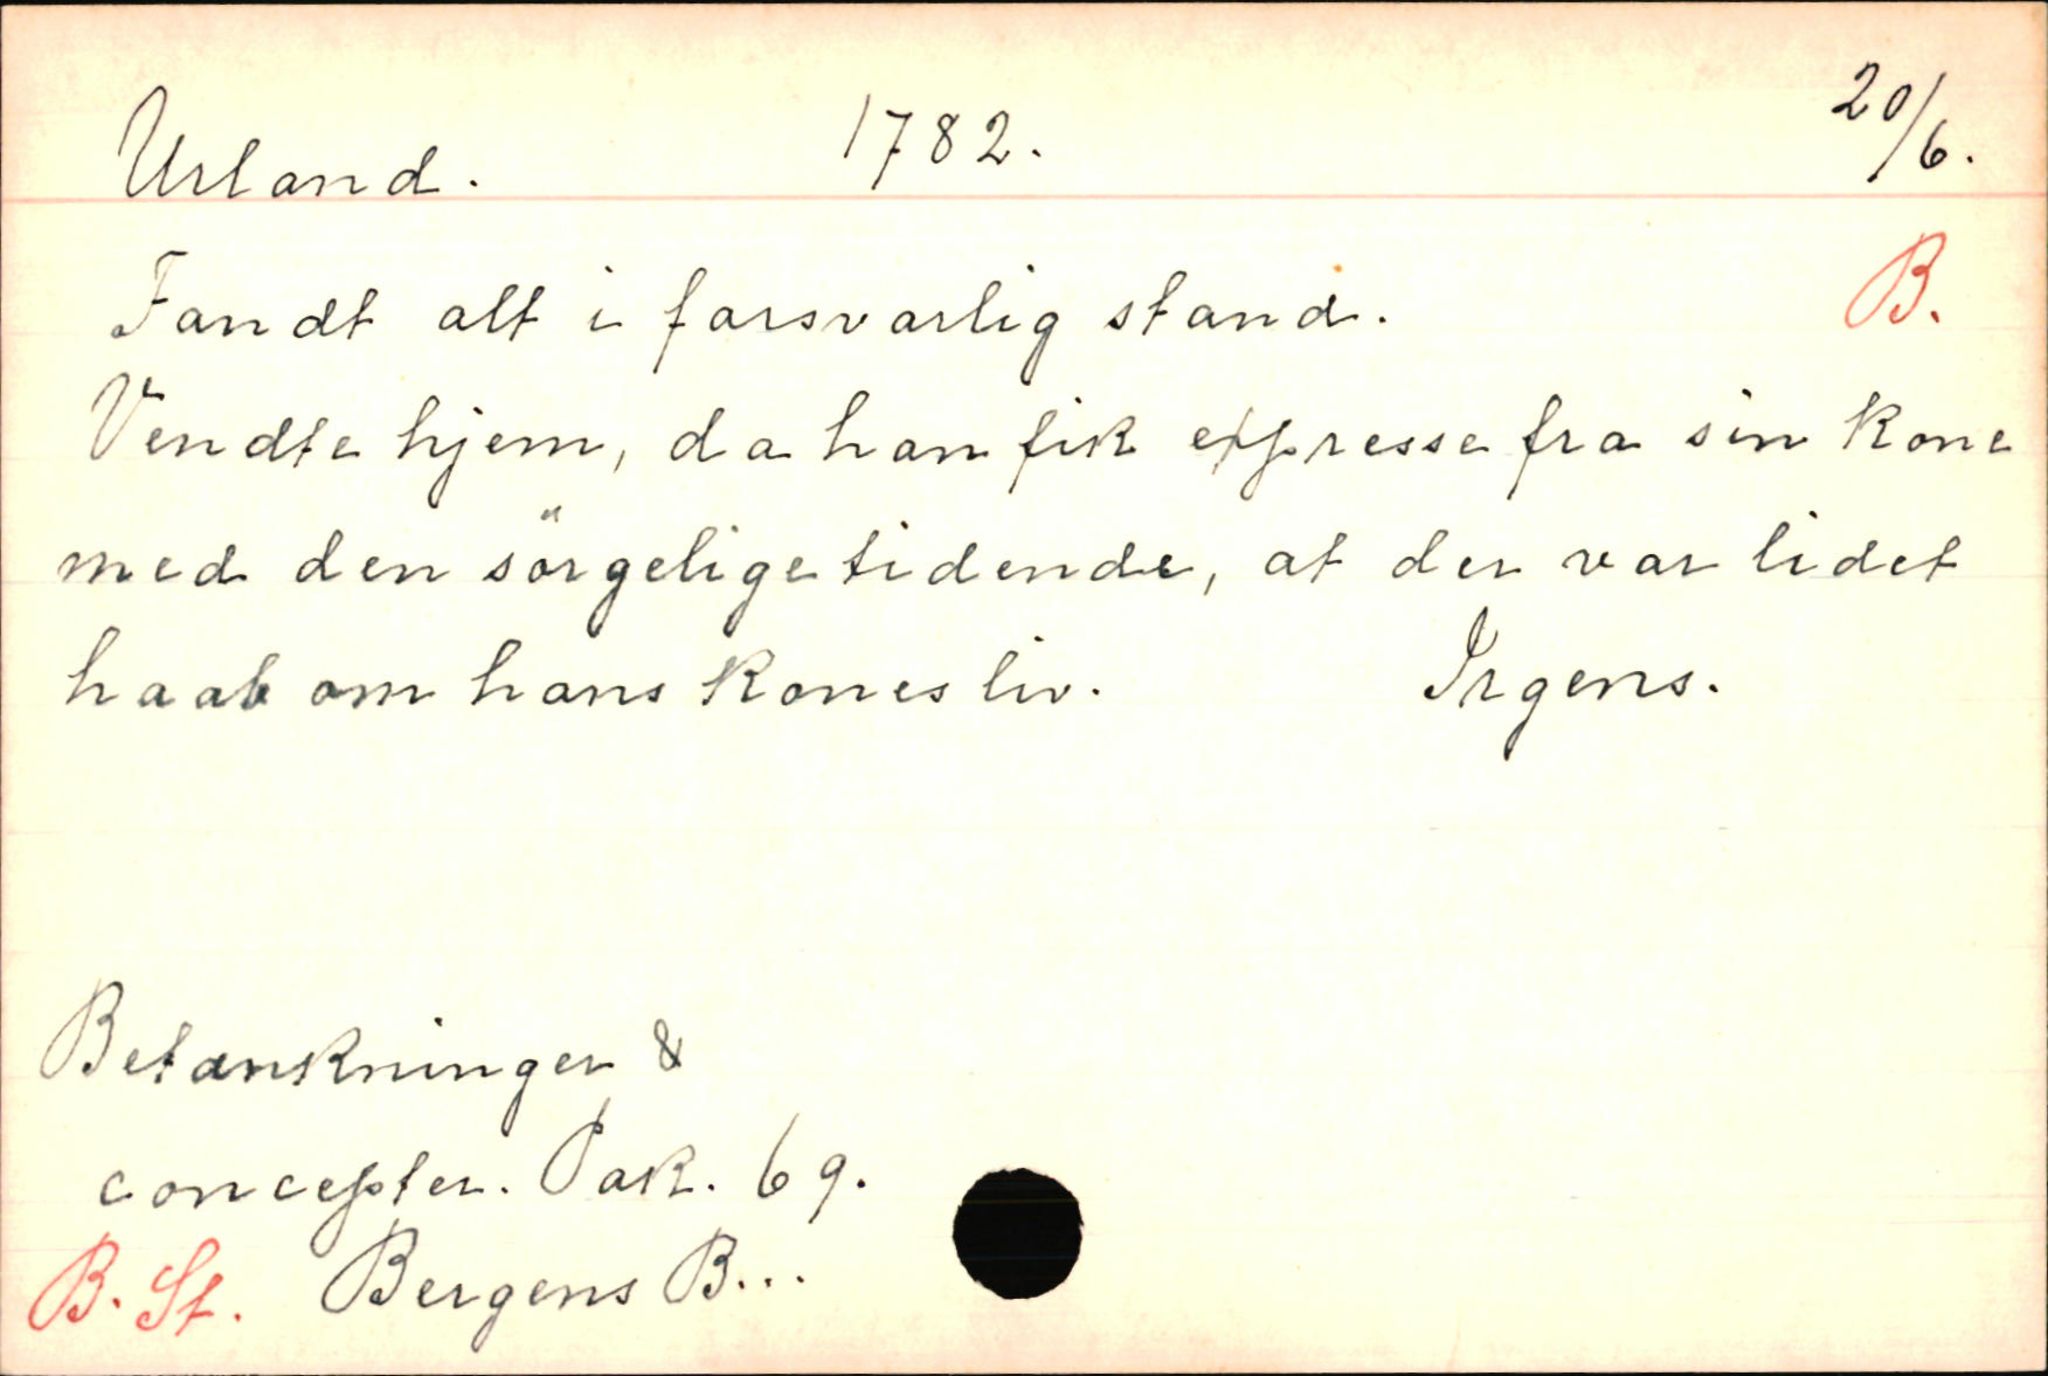 Urland. 1782. 20/6.
Fandt alt i forsvarlig stand. B.
Vendte hjem, da han fik expresse fra sin kone
med den sörgelige tidende, at der var lidet
haab om hans kones liv. Irgens.
Betænkninger &
concepter. Pak. 69.
B. St. Bergens B...